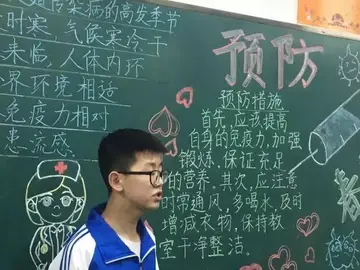 传染病的高发季节
时寒,气候寒冷干
来临,人体内环
界环境相适
免疫力相对
患流感
预防
预防措施
首先,应该提高
自身的免疫力,加强
锻炼,保证充足
的营养。其次,应注意
时常通风,多喝水,及时
增减衣物,保持教
室干净整洁。